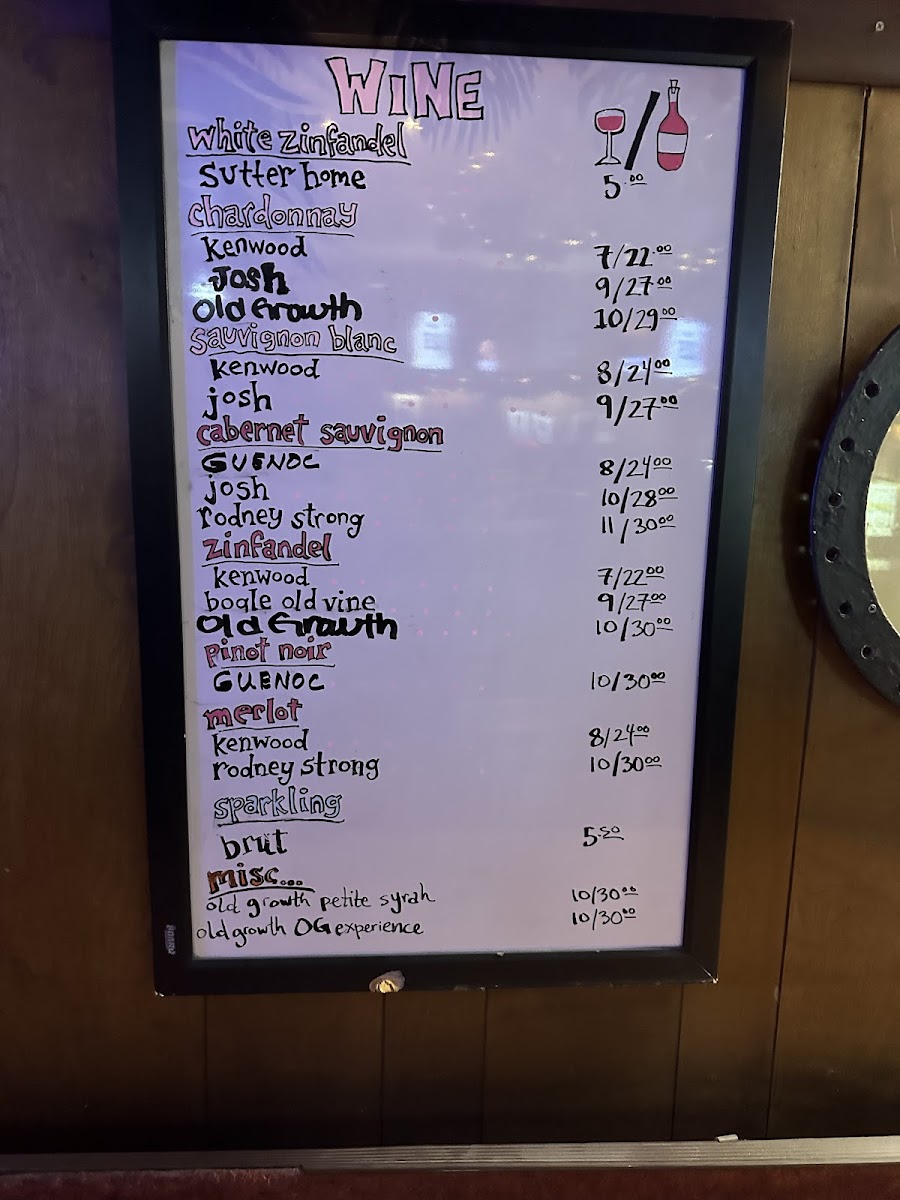 WiNE
white zinfandel
Sutter home 5.00
chardonnay
Kenwood 7/22.00
Josh 9/27.00
Old Growth 10/29.00
sauvignon blanc
kenwood 8/24.00
josh 9/27.00
cabernet sauvignon
GUENOC 8/24.00
josh 10/28.00
rodney strong 11/30.00
zinfandel
kenwood 7/22.00
bogle old vine 9/27.00
Old Growth 10/30.00
pinot noir
GUENOC 10/30.00
merlot
kenwood 8/24.00
rodney strong 10/30.00
sparkling
brut 5.50
misc...
old growth petite syrah 10/30.00
old growth OG experience 10/30.00